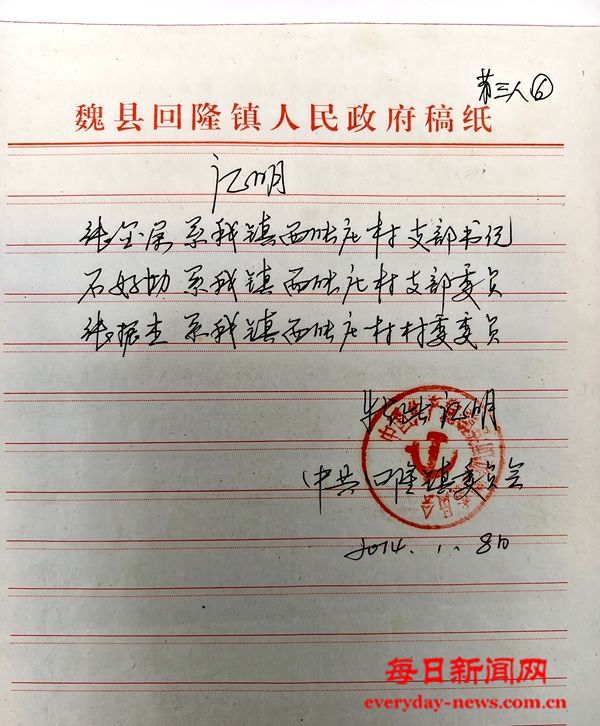 第三人⑥
魏县回隆镇人民政府稿纸
证明
张金属系我镇西张庄村支部书记
石好勤系我镇西张庄村支部委员
张振杰系我镇西张庄村村委委员
特此证明
中共回隆镇委员会
2014.1.8日
每日新闻网
everyday-news.com.cn